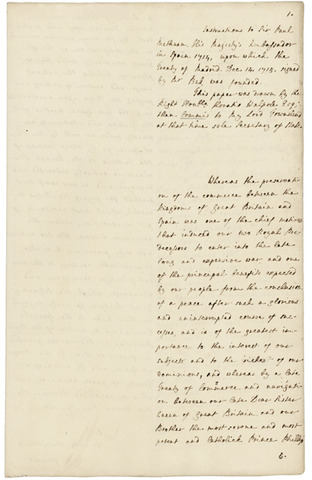 1.
Instructions to Sir Paul
Methuen His Majesty's Ambassador
in Spain 1714, upon which the
Treaty of Madrid Dec. 14. 1715. signed
by Mr Bub, was founded.
This paper was drawn by the
Right Honble. Horatio Walpole Esqr.
then Commis to My Lord Townshend
at that time sole Secretary of State.
Whereas the preservati-
on of the commerce between the
Kingdoms of Great Britain and
Spain was one of the chief motives
that induced our two Royal Pre-
decessors to enter into the late
long and expensive war and one
of the principal benefits expected
by our people from the conclusion
of a peace after such a glorious
and uninterrupted course of suc-
cesses, and is of the greatest im-
portance to the interest of our
subjects and to the riches of our
Dominions, and whereas by a late
Treaty of Commerce and navigati-
on between our late Dear Sister
Queen of Great Britain and our
Brother the most serene and most
potent and Catholick Prince Phillip